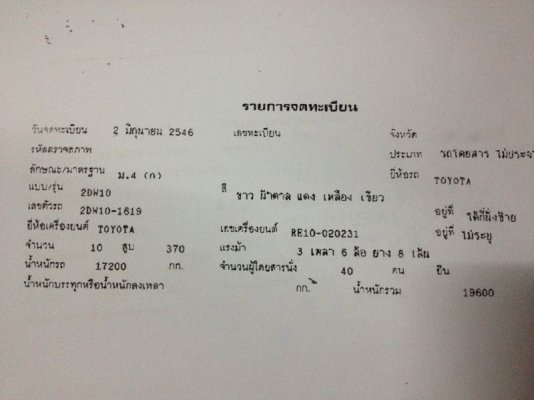 รายการจดทะเบียน
วันจดทะเบียน 2 มิถุนายน 2546 เลขทะเบียน จังหวัด
รหัสตรวจสภาพ ประเภท รถโดยสาร ไม่ประจำ
ลักษณะ/มาตรฐาน ม.4 (ก) ยี่ห้อรถ TOYOTA
แบบ/รุ่น 2DW10 สี ขาว น้ำตาล แดง เหลือง เขียว
เลขตัวรถ 2DW10-1619 อยู่ที่ ใต้ที่นั่งซ้าย
ยี่ห้อเครื่องยนต์ TOYOTA เลขเครื่องยนต์ RE10-020231 อยู่ที่ ไม่ระบุ
จำนวน 10 สูบ 370 แรงม้า 3 เพลา 6 ล้อ ยาง 8 เส้น
น้ำหนักรถ 17200 กก. จำนวนผู้โดยสารนั่ง 40 คน ยืน
น้ำหนักบรรทุกหรือน้ำหนักลงเพลา กก. น้ำหนักรวม 19600